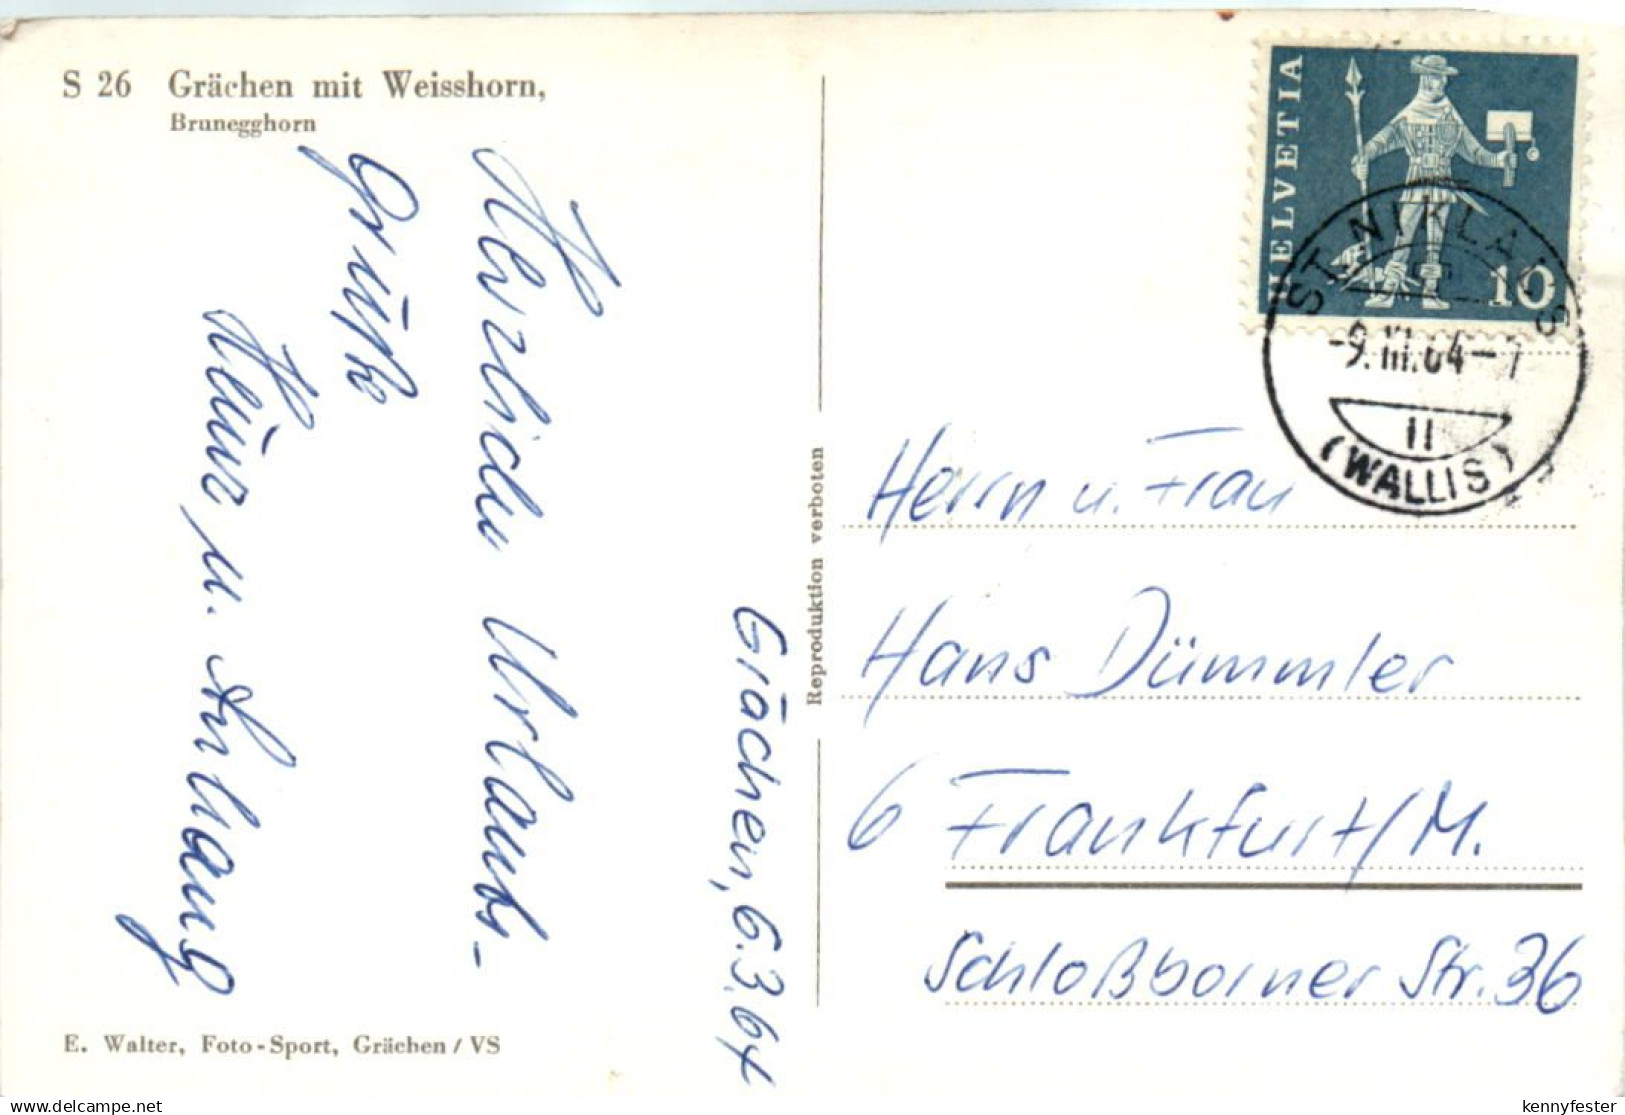 S 26 Grächen mit Weisshorn,
Brunegghorn
Herzliche Urlaubs-
grüße
u. Anhang
Grächen, 6.3.64
Reproduktion verboten
HELVETIA
10
ST. NIKLAUS
-9.III.64-7
II
(WALLIS)
Herrn u. Frau
Hans Dümmler
6 Frankfurt/M.
Schloßborner Str. 36
E. Walter, Foto-Sport, Grächen / VS
delcampe.net
kennyfester